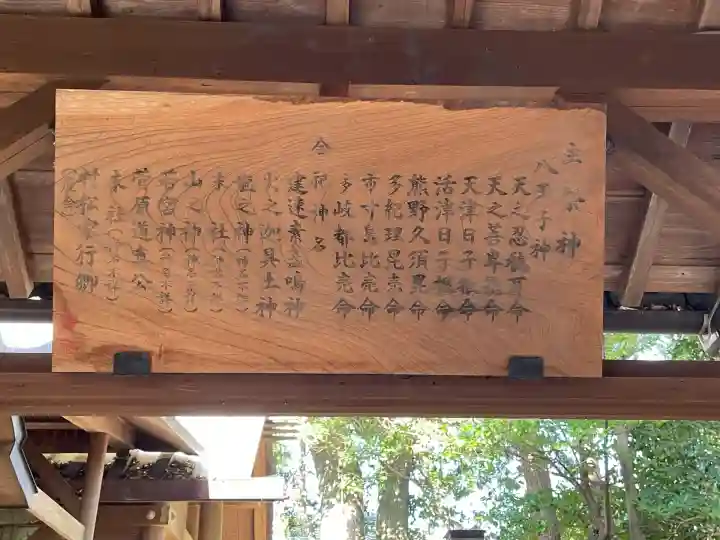 主祭神
八王子神
天之忍穂可命
天之菩卑能命
天津日子根命
活津日子根命
熊野久須毘命
多紀理毘売命
市寸島比売命
多岐都比売命
合祀神名
建速素盞嗚神
火之迦具土神
龍之神(神名不詳)
末社(神名不詳)
山之神(神名不詳)
若宮神
菅原道真公
末社
村松家行卿